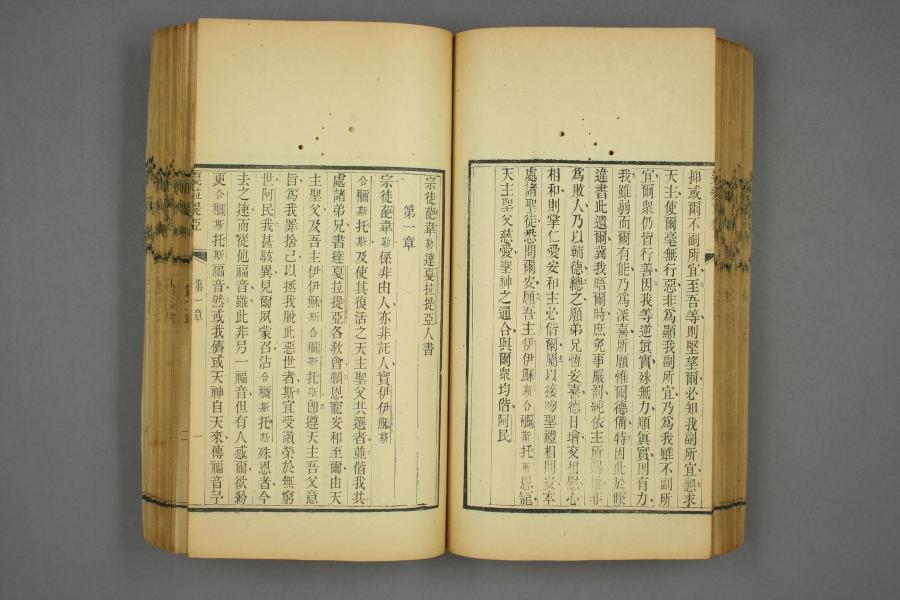 抑或爾不副所宜至吾等則堅望爾必知我副所宜懇求
天主使爾毫無行惡非為顯我副所宜乃為我雖不副所
宜爾眾仍皆行善因我等逆眞實殊無力順眞實則有力
我雖弱而爾有能乃為深喜所願惟爾德備特因此於暌
違書此遺爾冀我晤爾時庶免事嚴罰純依主所賜權非
為敗人乃以輔德總之願弟兄恆安喜德日增交相慰心
相和則掌仁愛安和主必偕爾屬以接吻聖禮相問安本
處諸聖徒恐問爾安願吾主伊伊穌斯合穪斯托斯恩寵
天主聖父慈愛聖神之通合與爾眾均偕阿民
宗徒葩韋勒達戛拉提亞人書
第一章
宗徒葩韋勒係非由人亦非託人實伊伊穌斯
合穪斯托斯及使其復活之天主聖父共選者並偕我共
處諸弟兄書達戛拉提亞各敎會願恩寵安和至爾由天
主聖父及吾主伊伊穌斯合穪斯托斯卽遵天主吾父意
旨為我罪捨己以拯我脫此惡世者斯宜受讚榮於無窮
世阿民我甚駭異見爾夙蒙召沾合穪斯托斯殊恩者今
去之速而從他福音雖此非另一福音但有人惑爾欲紛
更合穪斯托斯福音然或我儕或天神自天來傳福音予
戛拉提亞
第一章
一